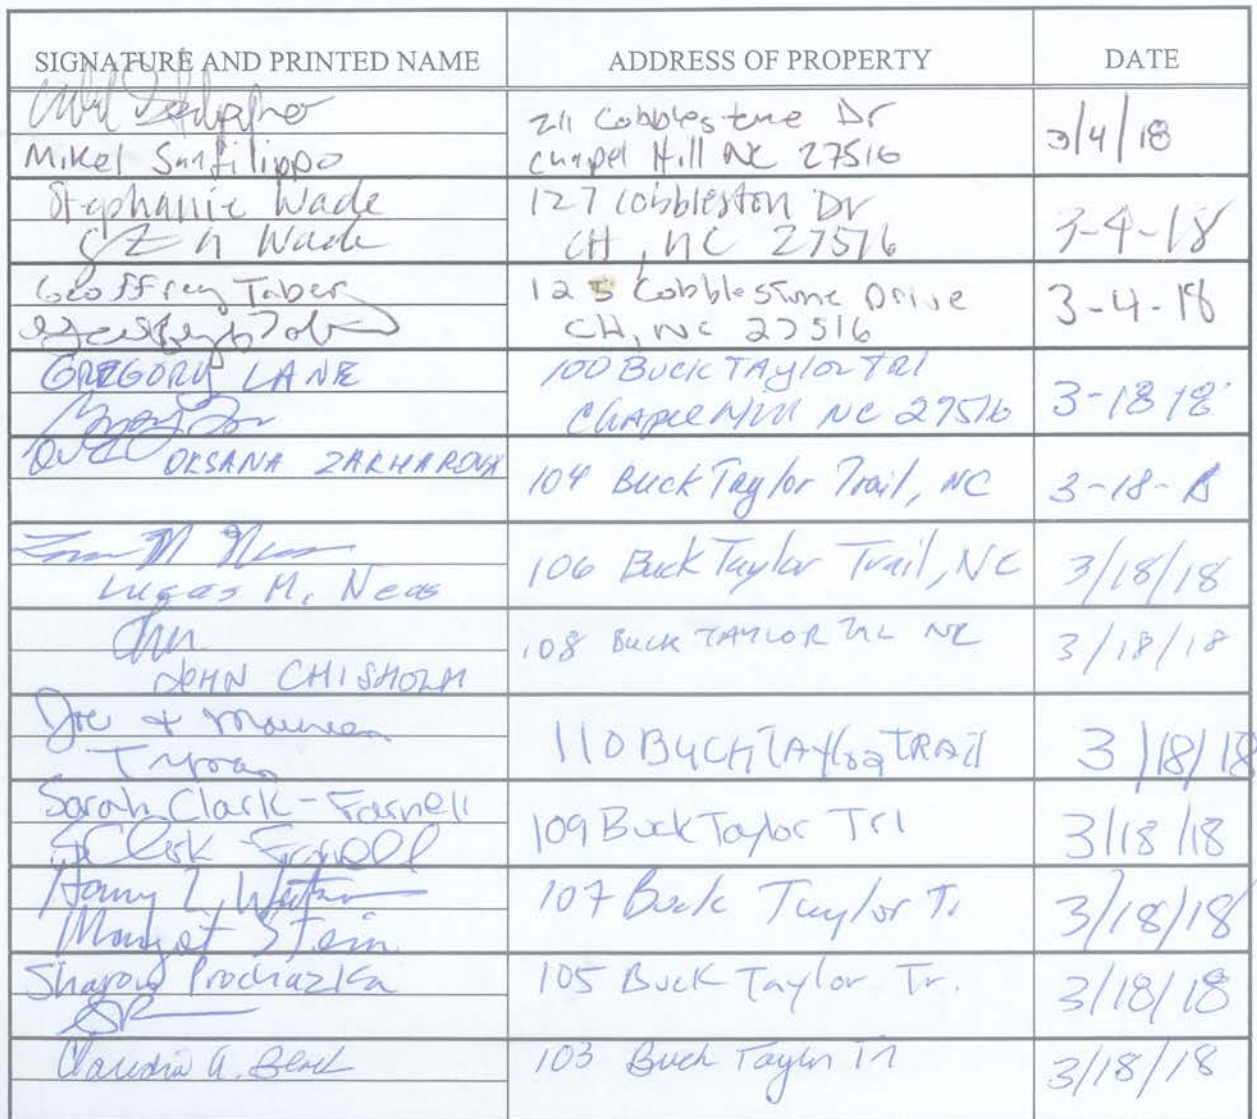 SIGNATURE AND PRINTED NAME ADDRESS OF PROPERTY DATE
211 Cobblestone Dr
Mikel Sanfilippo Chapel Hill NC 27516 3/4/18
Stephanie Wade 127 Cobbleston Dr
Wade CH, NC 27516 3-4-18
Geoffrey Taber 125 Cobblestone Drive
CH, NC 27516 3-4-18
GREGORY LANE 100 Buck TAylor TRl
Chapel Hill NC 27516 3-18 18
OKSANA ZAKHAROVA 104 Buck Taylor Trail, NC 3-18-18
Lucas M. Neas 106 Buck Taylor Trail, NC 3/18/18
JOHN CHISHOLM 108 Buck TAYLOR TRL NC 3/18/18
Joe + Maureen
110 BUCK TAYlor TRAIl 3/18/18
Sarah Clark-Farnell
S Clark-Farnell 109 Buck Taylor Trl 3/18/18
Harry L. Watson
Margaret Stein 107 Buck Taylor Tr 3/18/18
Sharon Prochazka 105 Buck Taylor Tr. 3/18/18
Claudia A. Black 103 Buck Taylor Trl 3/18/18